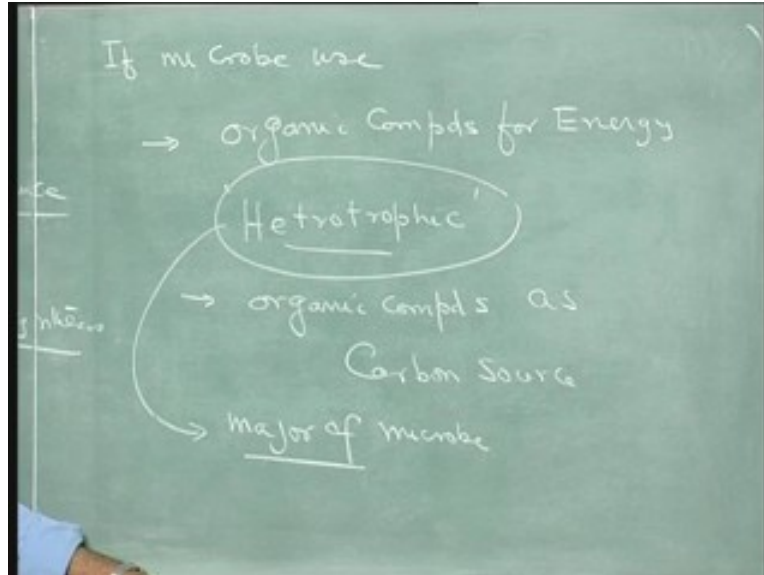 If microbe use
→ organic Compds for Energy
'Hetrotrophic'
→ organic compds as
Carbon source
→ major of microbe